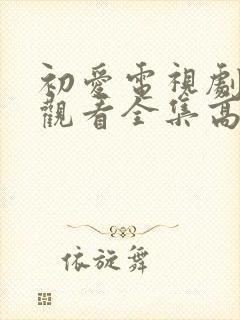 初愛電視劇
觀看全集高
依旋舞